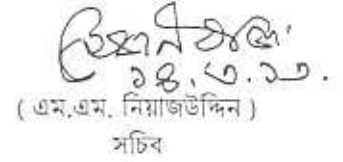 ১৪.৩.১৩.
( এম.এম. নিয়াজউদ্দিন )
সচিব